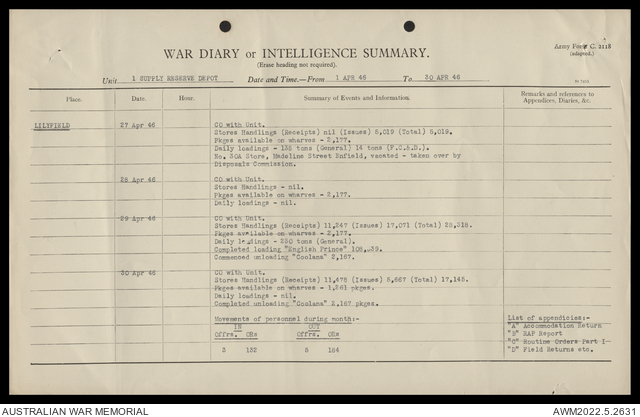 Army Form C. 2118
(adapted.)
WAR DIARY or INTELLIGENCE SUMMARY.
(Erase heading not required).
Unit 1 SUPPLY RESERVE DEPOT Date and Time.—From 1 APR 46 To 30 APR 46
Place. Date. Hour. Summary of Events and Information. Remarks and references to Appendices, Diaries, &c.
LILYFIELD 27 Apr 46 CO with Unit.
Stores Handlings (Receipts) nil (Issues) 5,019 (Total) 5,019.
Pkges available on wharves - 2,177.
Daily loadings - 132 tons (General) 14 tons (F.C.S.D.).
No. 30A Store, Madeline Street Enfield, vacated - taken over by
Disposals Commission.
28 Apr 46 CO with Unit.
Stores Handlings - nil.
Pkges available on wharves - 2,177.
Daily loadings - nil.
29 Apr 46 CO with Unit.
Stores Handlings (Receipts) 11,247 (Issues) 17,071 (Total) 28,318.
Pkges available on wharves - 2,177.
Daily loadings - 230 tons (General).
Completed loading "English Prince"
Commenced unloading "Coolana" 2,167.
30 Apr 46 CO with Unit.
Stores Handlings (Receipts) 11,478 (Issues) 5,667 (Total) 17,145.
Pkges available on wharves - 1,261 pkges.
Daily loadings - nil.
Completed unloading "Coolana" 2,167 pkges.
Movements of personnel during month:-
IN OUT
Offrs. ORs Offrs. ORs
3 122 8 184
List of appendicies:-
"A" Accommodation Return
"B" RAP Report
"C" Routine Orders Part I
"D" Field Returns etc.
AUSTRALIAN WAR MEMORIAL AWM2022.5.2631